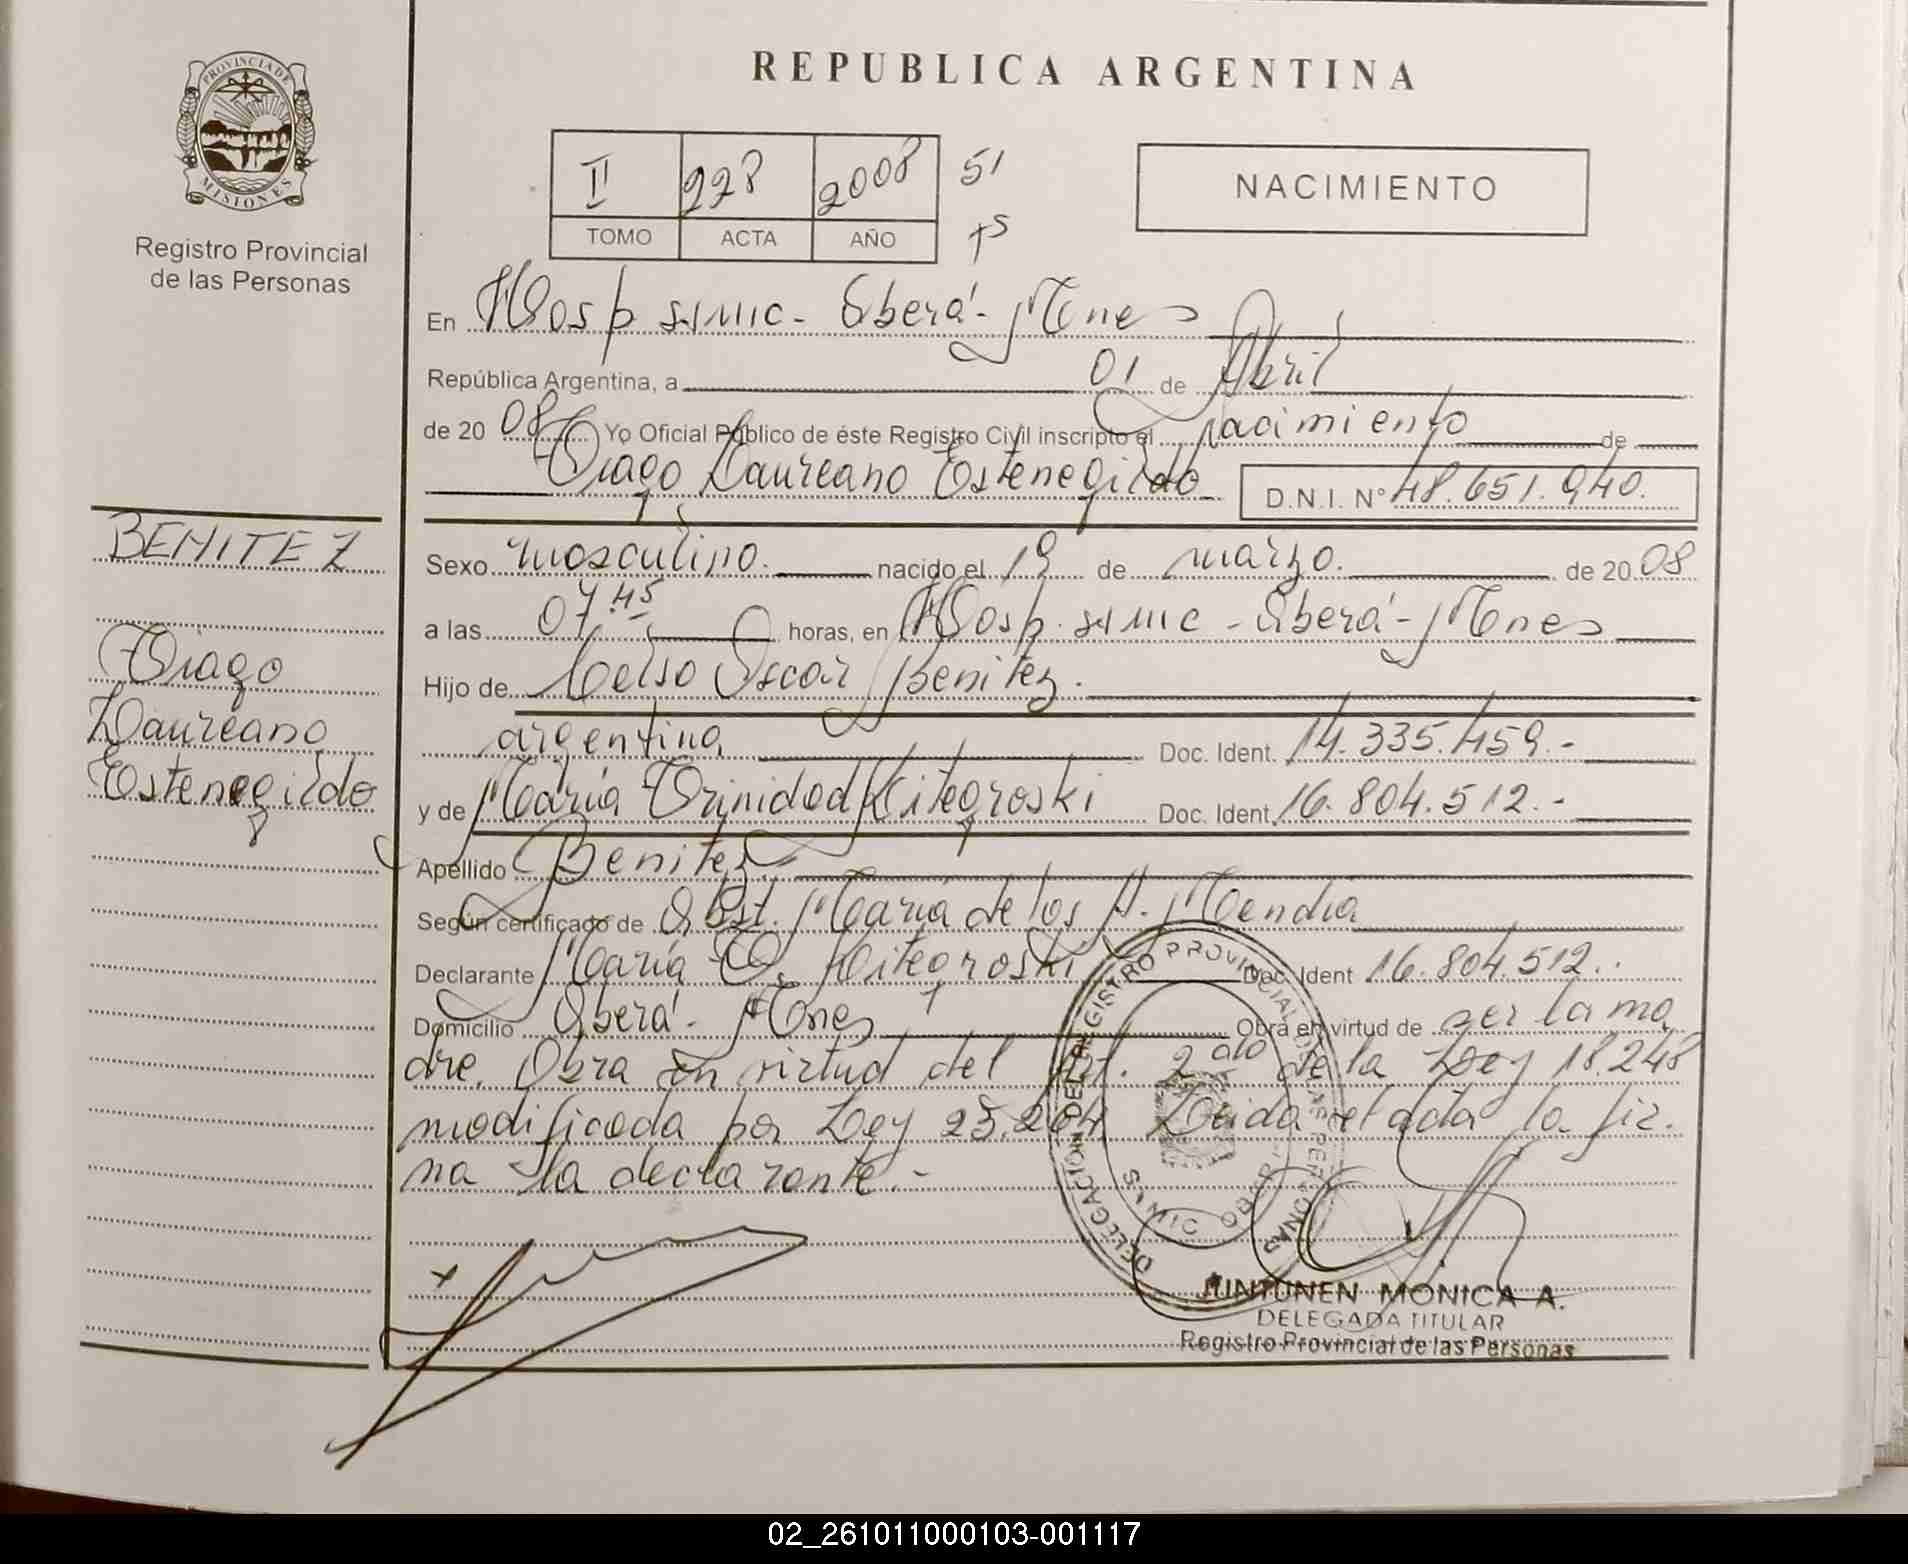 REPUBLICA ARGENTINA
PROVINCIA DE MISIONES
Registro Provincial
de las Personas
II 228 2008 51
TOMO ACTA AÑO
NACIMIENTO
En Hosp SAMIC - Oberá - Mnes
República Argentina, a 01 de Abril
de 2008 Yo Oficial Público de éste Registro Civil inscripto el nacimiento de
Tiago Laureano Estenegildo D.N.I. N° 48.651.940.
BENITEZ
Tiago
Laureano
Estenegildo
Sexo masculino. nacido el 19 de marzo. de 2008
a las 07.45 horas, en Hosp. SAMIC - Oberá - Mnes
Hijo de Celso Oscar Benitez.
argentina Doc. Ident. 14.335.459.-
y de María Trinidad Kitegroski Doc. Ident. 16.804.512.-
Apellido Benitez.
Según certificado de Obst. María de los A. Mendia
Declarante María T. Kitegroski Doc. Ident 16.804.512..
Domicilio Oberá - Mnes Obra en virtud de ser la ma
dre. Obra en virtud del Art. 2do de la Ley 18.248
modificada por Ley 23.264 Leida el acta la fir-
ma la declarante.-
DELEGACION DEL REGISTRO PROVINCIAL DE LAS PERSONAS
JUNTUNEN MONICA A.
DELEGADA TITULAR
Registro Provincial de las Personas
02_261011000103-001117